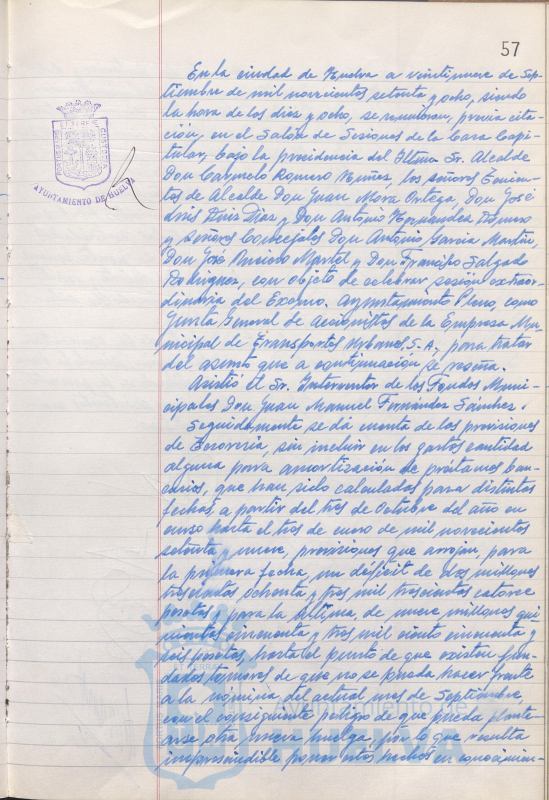 57
En la ciudad de Huelva a veintinueve de Sep-
tiembre de mil novecientos setenta y ocho, siendo
la hora de las diez y ocho, se reunieron, previa cita-
ción, en el Salón de Sesiones de la Casa Capi-
tular, bajo la presidencia del Iltmo. Sr. Alcalde
Don Carmelo Romero Núñez, los señores Tenien-
tes de Alcalde Don Juan Mora Ortega, Don José
Luis Ruiz Díaz y Don Antonio Hernández Romero
y señores Concejales Don Antonio García Martín,
Don José Martel y Don Francisco Salgado
Rodríguez, con objeto de celebrar sesión extraor-
dinaria del Excmo. Ayuntamiento Pleno, como
Junta General de Accionistas de la Empresa Mu-
nicipal de Transportes Urbanos S.A., para tratar
del asunto que a continuación se reseña.
Asistió el Sr. Interventor de los Fondos Muni-
cipales Don Juan Manuel Fernández Sánchez.
Seguidamente se dá cuenta de las previsiones
de Tesorería, sin incluir en los gastos cantidad
alguna para amortización de préstamos ban-
carios, que han sido calculadas para distintas
fechas, a partir del tres de Octubre del año en
curso hasta el tres de enero de mil novecientos
setenta y nueve, previsiones que arrojan, para
la primera fecha un déficit de dos millones
trescientas ochenta y tres mil trescientas catorce
pesetas y para la última, de nueve millones qui-
nientas cincuenta y tres mil ciento cincuenta y
seis pesetas, hasta el punto de que existen fun-
dados temores de que no se pueda hacer frente
a la nómina del actual mes de Septiembre,
con el consiguiente peligro de que pueda plante-
arse otra nueva huelga, por lo que resulta
imprescindible poner estos hechos en conocimien-
AYUNTAMIENTO DE HUELVA
Ayuntamiento de
HUELVA